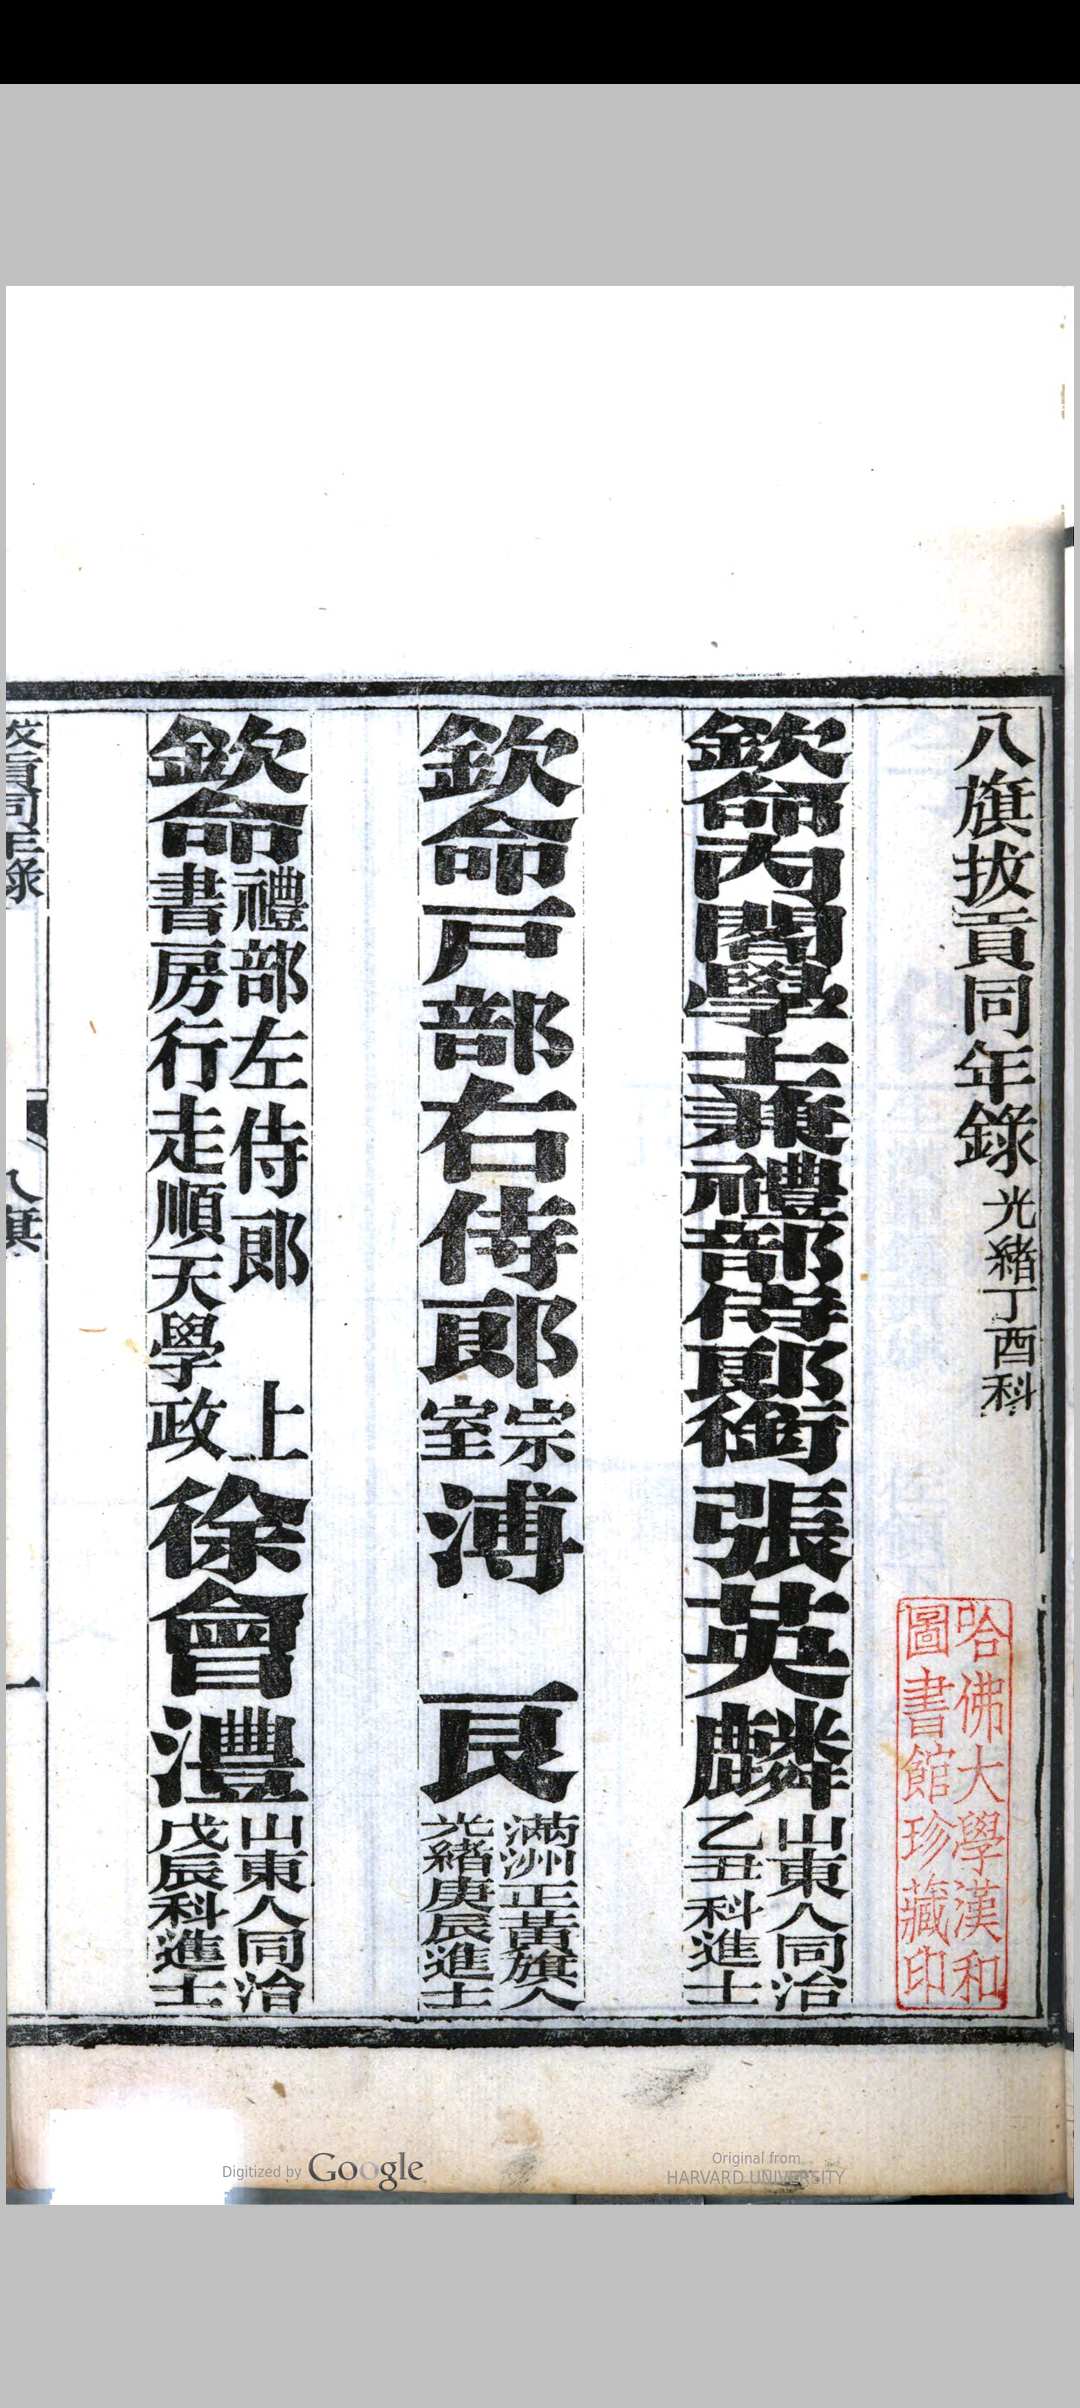 八旗拔貢同年錄 光緒丁酉科
哈佛大學漢和
圖書館珍藏印
欽命內閣學士兼禮部侍郎銜張英麟 山東人同治
乙丑科進士
欽命戶部右侍郎 宗
室 溥 良 滿洲正黃旗人
光緒庚辰進士
欽命 禮部左侍郎 上
書房行走順天學政 徐會灃 山東人同治
戊辰科進士
拔貢同年錄 八旗 一
Digitized by Google
Original from
HARVARD UNIVERSITY